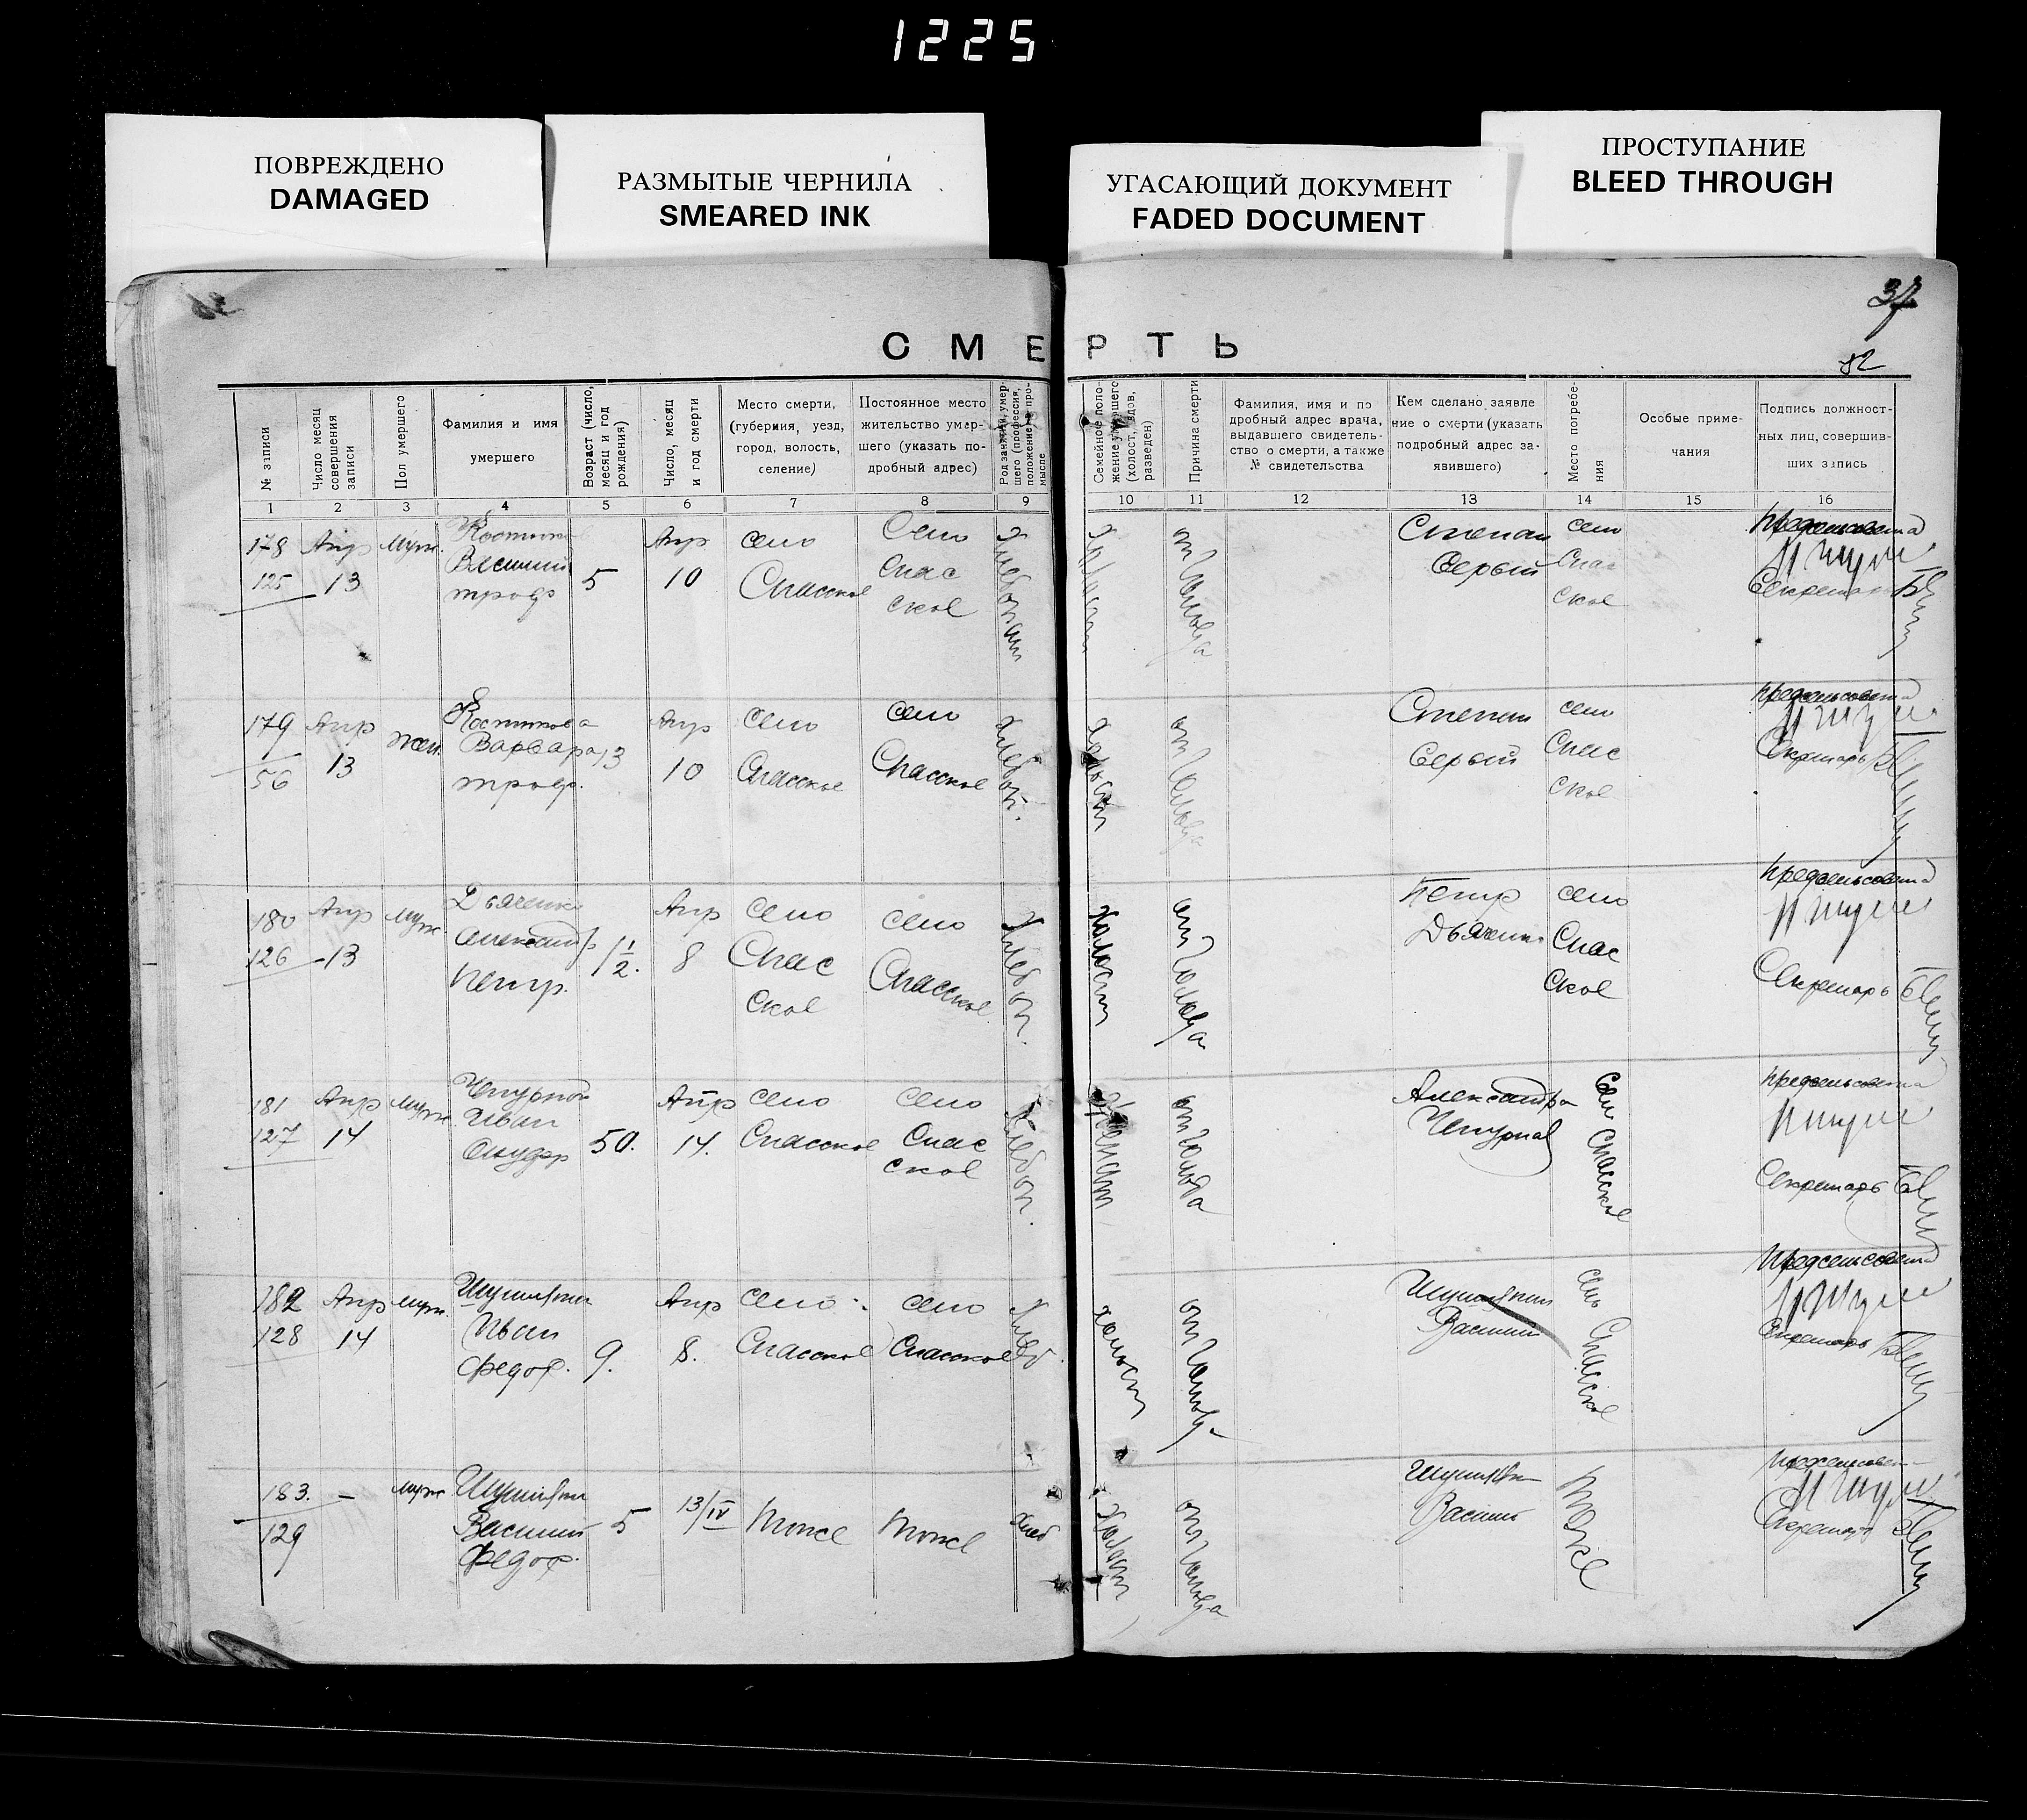 1225
ПОВРЕЖДЕНО
DAMAGED
РАЗМЫТЫЕ ЧЕРНИЛА
SMEARED INK
УГАСАЮЩИЙ ДОКУМЕНТ
FADED DOCUMENT
ПРОСТУПАНИЕ
BLEED THROUGH
37
82
СМЕРТЬ
№ записи
Число месяц
совершения
записи
Пол умершего
Фамилия и имя
умершего
Возраст (число,
месяц и год
рождения)
Число, месяц
и год смерти
Место смерти,
(губерния, уезд,
город, волость,
селение)
Постоянное место
жительство умер-
шего (указать по-
дробный адрес)
Род занятий, умер-
шего (профессия,
положение в про-
мысле
Семейное поло-
жение умершего
(холост, вдов,
разведен)
Причина смерти
Фамилия, имя и по
дробный адрес врача,
выдавшего свидетель-
ство о смерти, а также
№ свидетельства
Кем сделано заявле
ние о смерти (указать
подробный адрес за-
явившего)
Место погребе-
ния
Особые приме-
чания
Подпись должност-
ных лиц, совершив-
ших запись
1 2 3 4 5 6 7 8 9 10 11 12 13 14 15 16
178
125
Апр
13
муж.
Василий
5
Апр
10
село
Спасское
Село
Спас
ское
от голода
Степан
Серый
село
Спас
ское
Предсельсовета
Секретарь
179
56
Апр
13
жен.
Костикова
Варвара
13
Апр
10
село
Спасское
село
Спасское
Хлебоп.
Холост
от голода
Степан
Серый
село
Спас
ское
Предсельсовета
Секретарь
180
126
Апр
13
муж
Дьяченко
Александр
Петр.
1 1/2.
Апр
8
село
Спас
ское
село
Спасское
Хлебоп.
Холост
от голода
Петр
Дьяченко
село
Спас
ское
Предсельсовета
Секретарь
181
127
Апр
14
муж
Чепурной
Иван
50.
Апр
14.
село
Спасское
село
Спас
ское
Хлебоп.
от голода
Александра
Село Спасское
Предсельсовета
Секретарь
182
128
Апр
14
муж.
Иван
Федор.
9.
Апр
8.
село
Спасское
село
Спасское
Хлеб.
холост
от голода
Василий
село Спасское
Предсельсовета
Секретарь
183.
129
–
муж
Василий
Федор.
5
13/IV
Тоже
Тоже
хлеб
Холост
от голода
Василий
Тоже
Секретарь